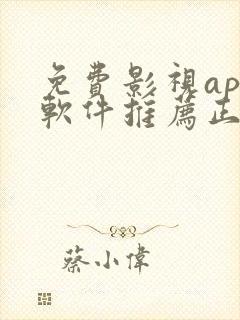 免費影視ap
軟件推薦正
蔡小偉